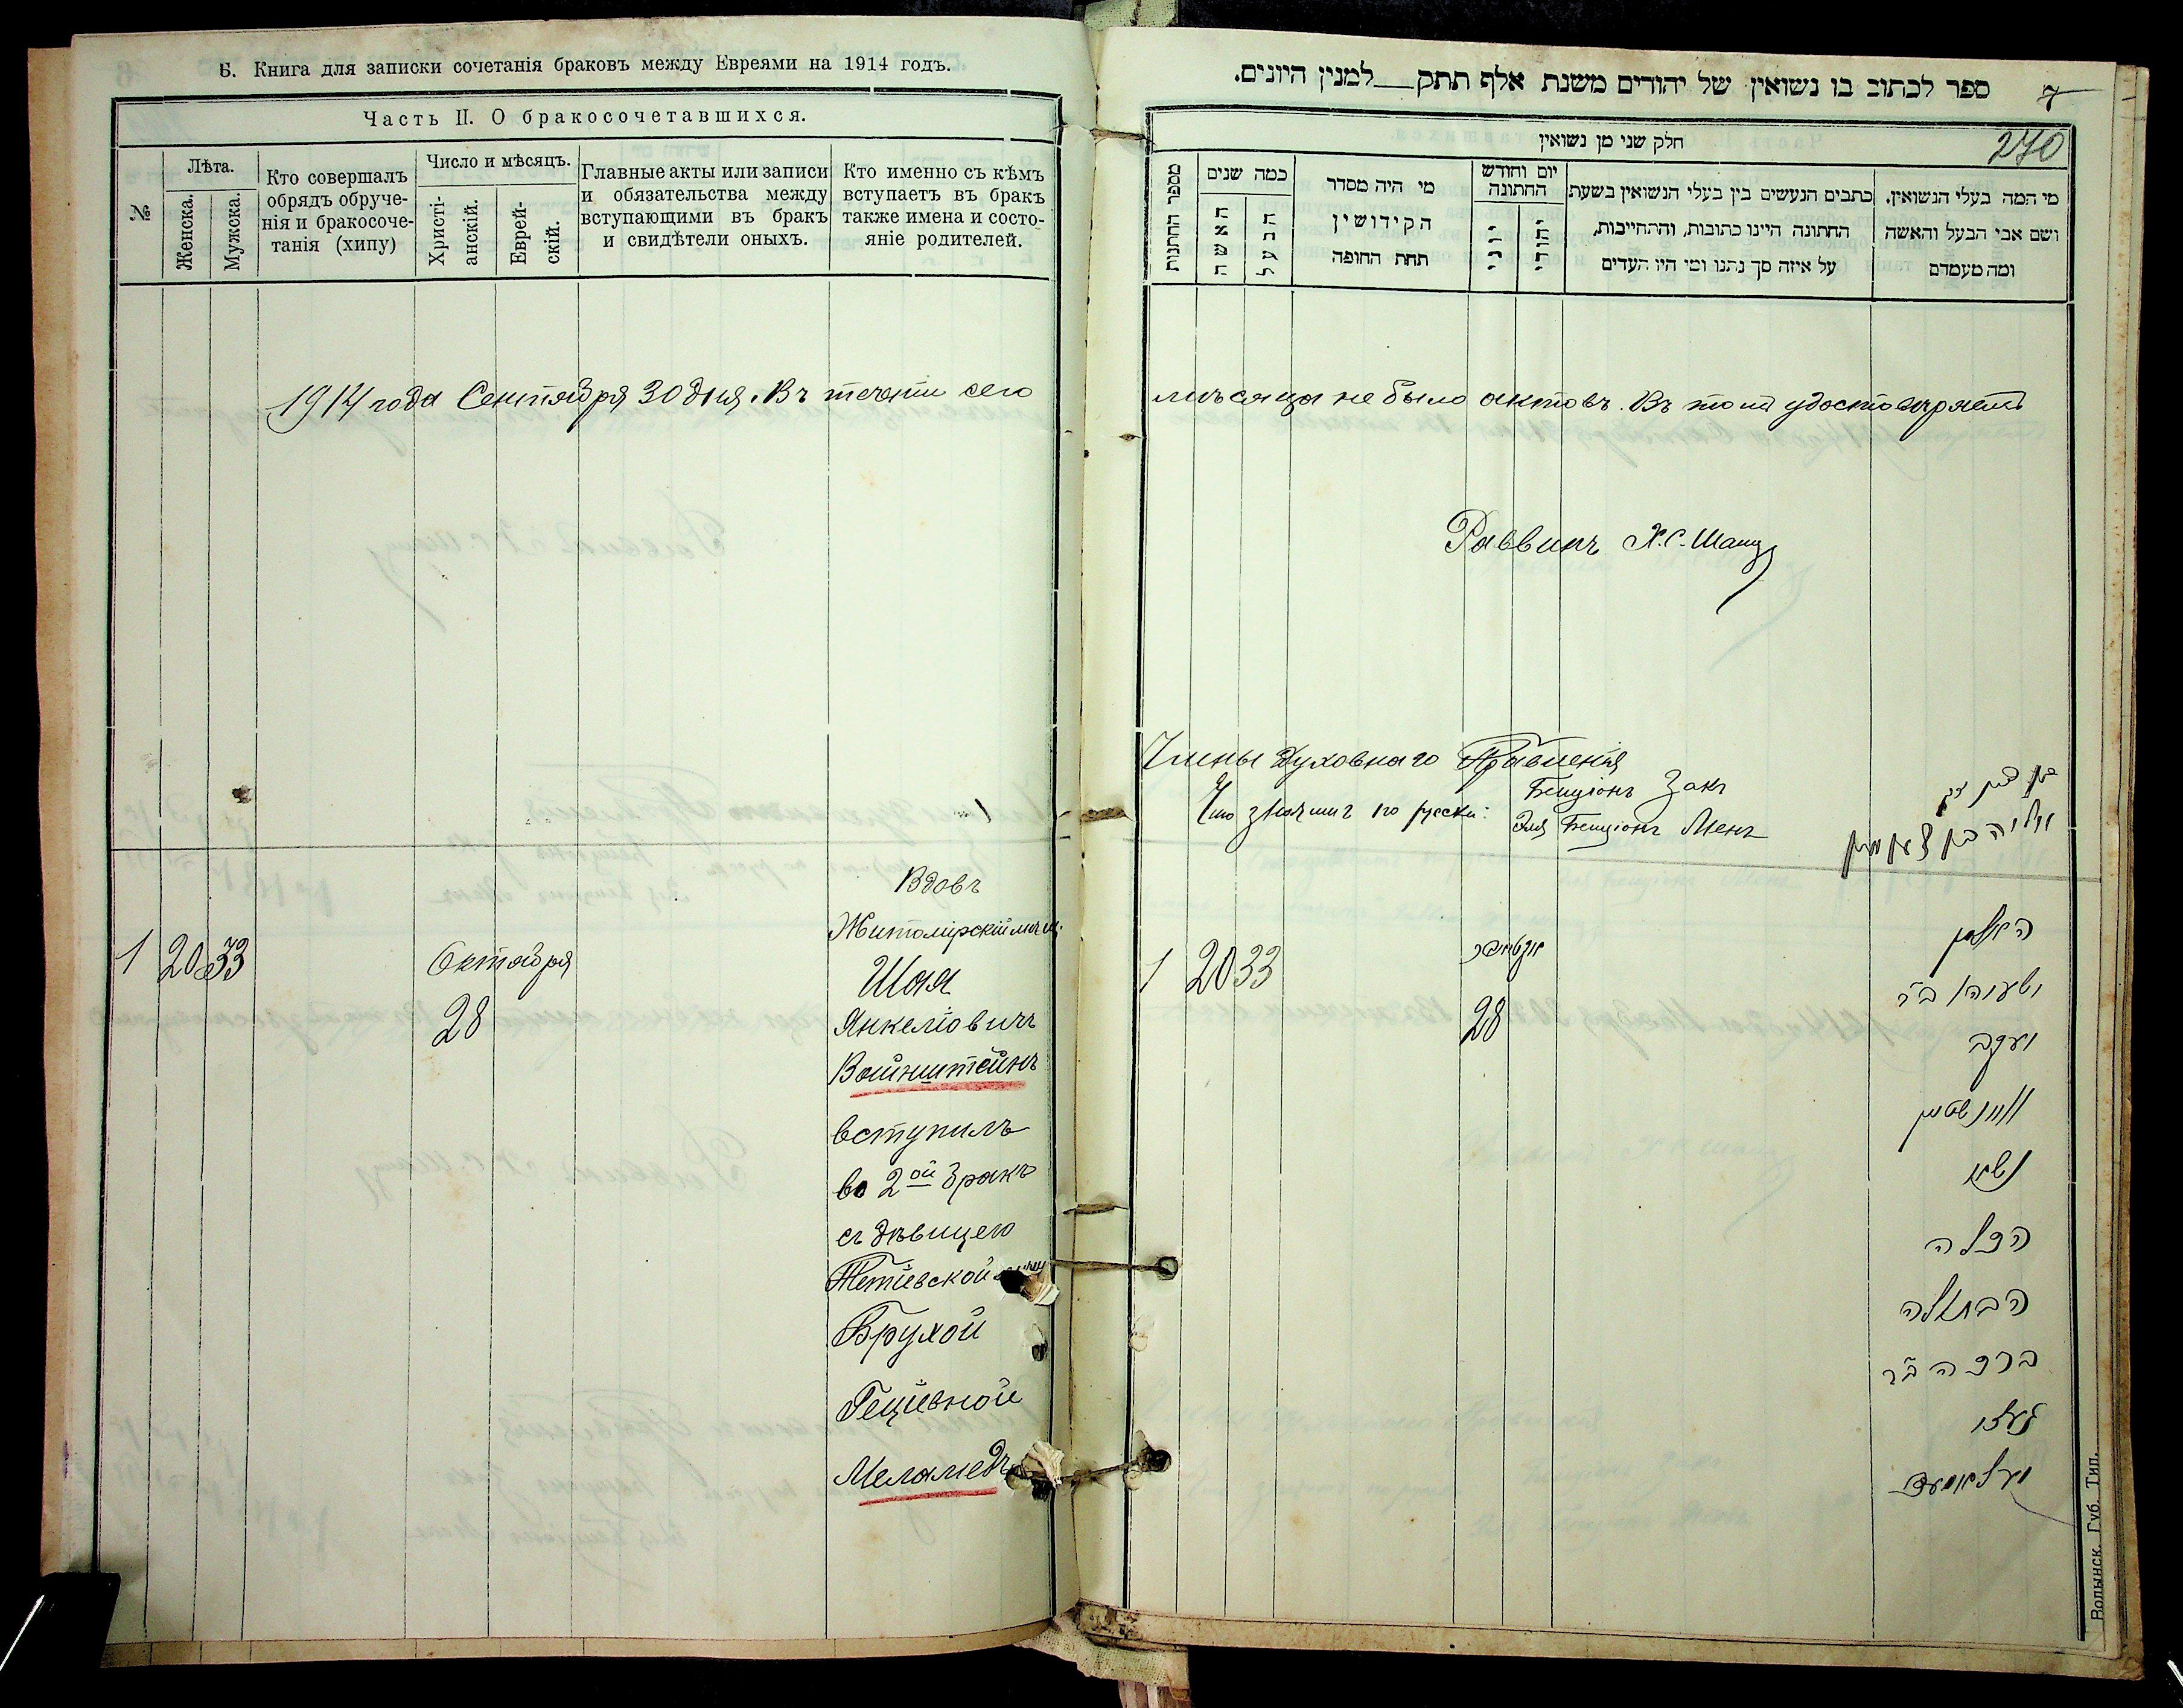 Б. Книга для записки сочетанія браковъ между Евреями на 1914 годъ.
Часть II. О бракосочетавшихся.
№
Лѣта.
Женска.
Мужска.
Кто совершалъ
обрядъ обруче-
нія и бракосоче-
танія (хипу)
Число и мѣсяцъ.
Христі-
анскій.
Еврей-
скій.
Главные акты или записи
и обязательства между
вступающими въ бракъ
и свидѣтели оныхъ.
Кто именно съ кѣмъ
вступаетъ въ бракъ
также имена и состо-
яніе родителей.
1914 года Сентября 30 дня. Въ теченіи сего
Вдовъ
Житомірскій мѣщ.
1 20 33
Октября
28
Шая
Янкеліовичъ
Вайнштейнъ
вступилъ
во 2ой бракъ
съ дѣвицею
Тетіевской
Брухой
Геціевной
Меламедъ
ספר לכתוב בו נשואין של יהודים משנת אלף תתק למנין היונים.
7
270
חלק שני מן נשואין
מספר החתונות
כמה שנים
האשה
הבעל
מי היה מסדר
הקידושין
תחת החופה
יום וחודש
החתונה
יוני
יהודי
כתבים הנעשים בין בעלי הנשואין בשעת
החתונה היינו כתובות, והתחייבות,
על איזה סך נתנו ומי היו העדים
מי המה בעלי הנשואין.
ושם אבי הבעל והאשה
ומה מעמדם
мѣсяца не было актовъ. Въ томъ удостовѣряетъ
Раввинъ Х.С. Шацъ
Члены Духовнаго Правленія
Бенціонъ Закъ
Что значитъ по русски:
Эля Бенціонъ Менъ
בן ציון זק
אליה בן ציון מען
1 20 33
אקטאבר
28
האלמן
ישעיהו ב״ר
יעקב
וויינשטיין
נשא
הכלה
הבתולה
ברכה ב״ר
געצי
מעלאמעד
Волынск. Губ. Тип.